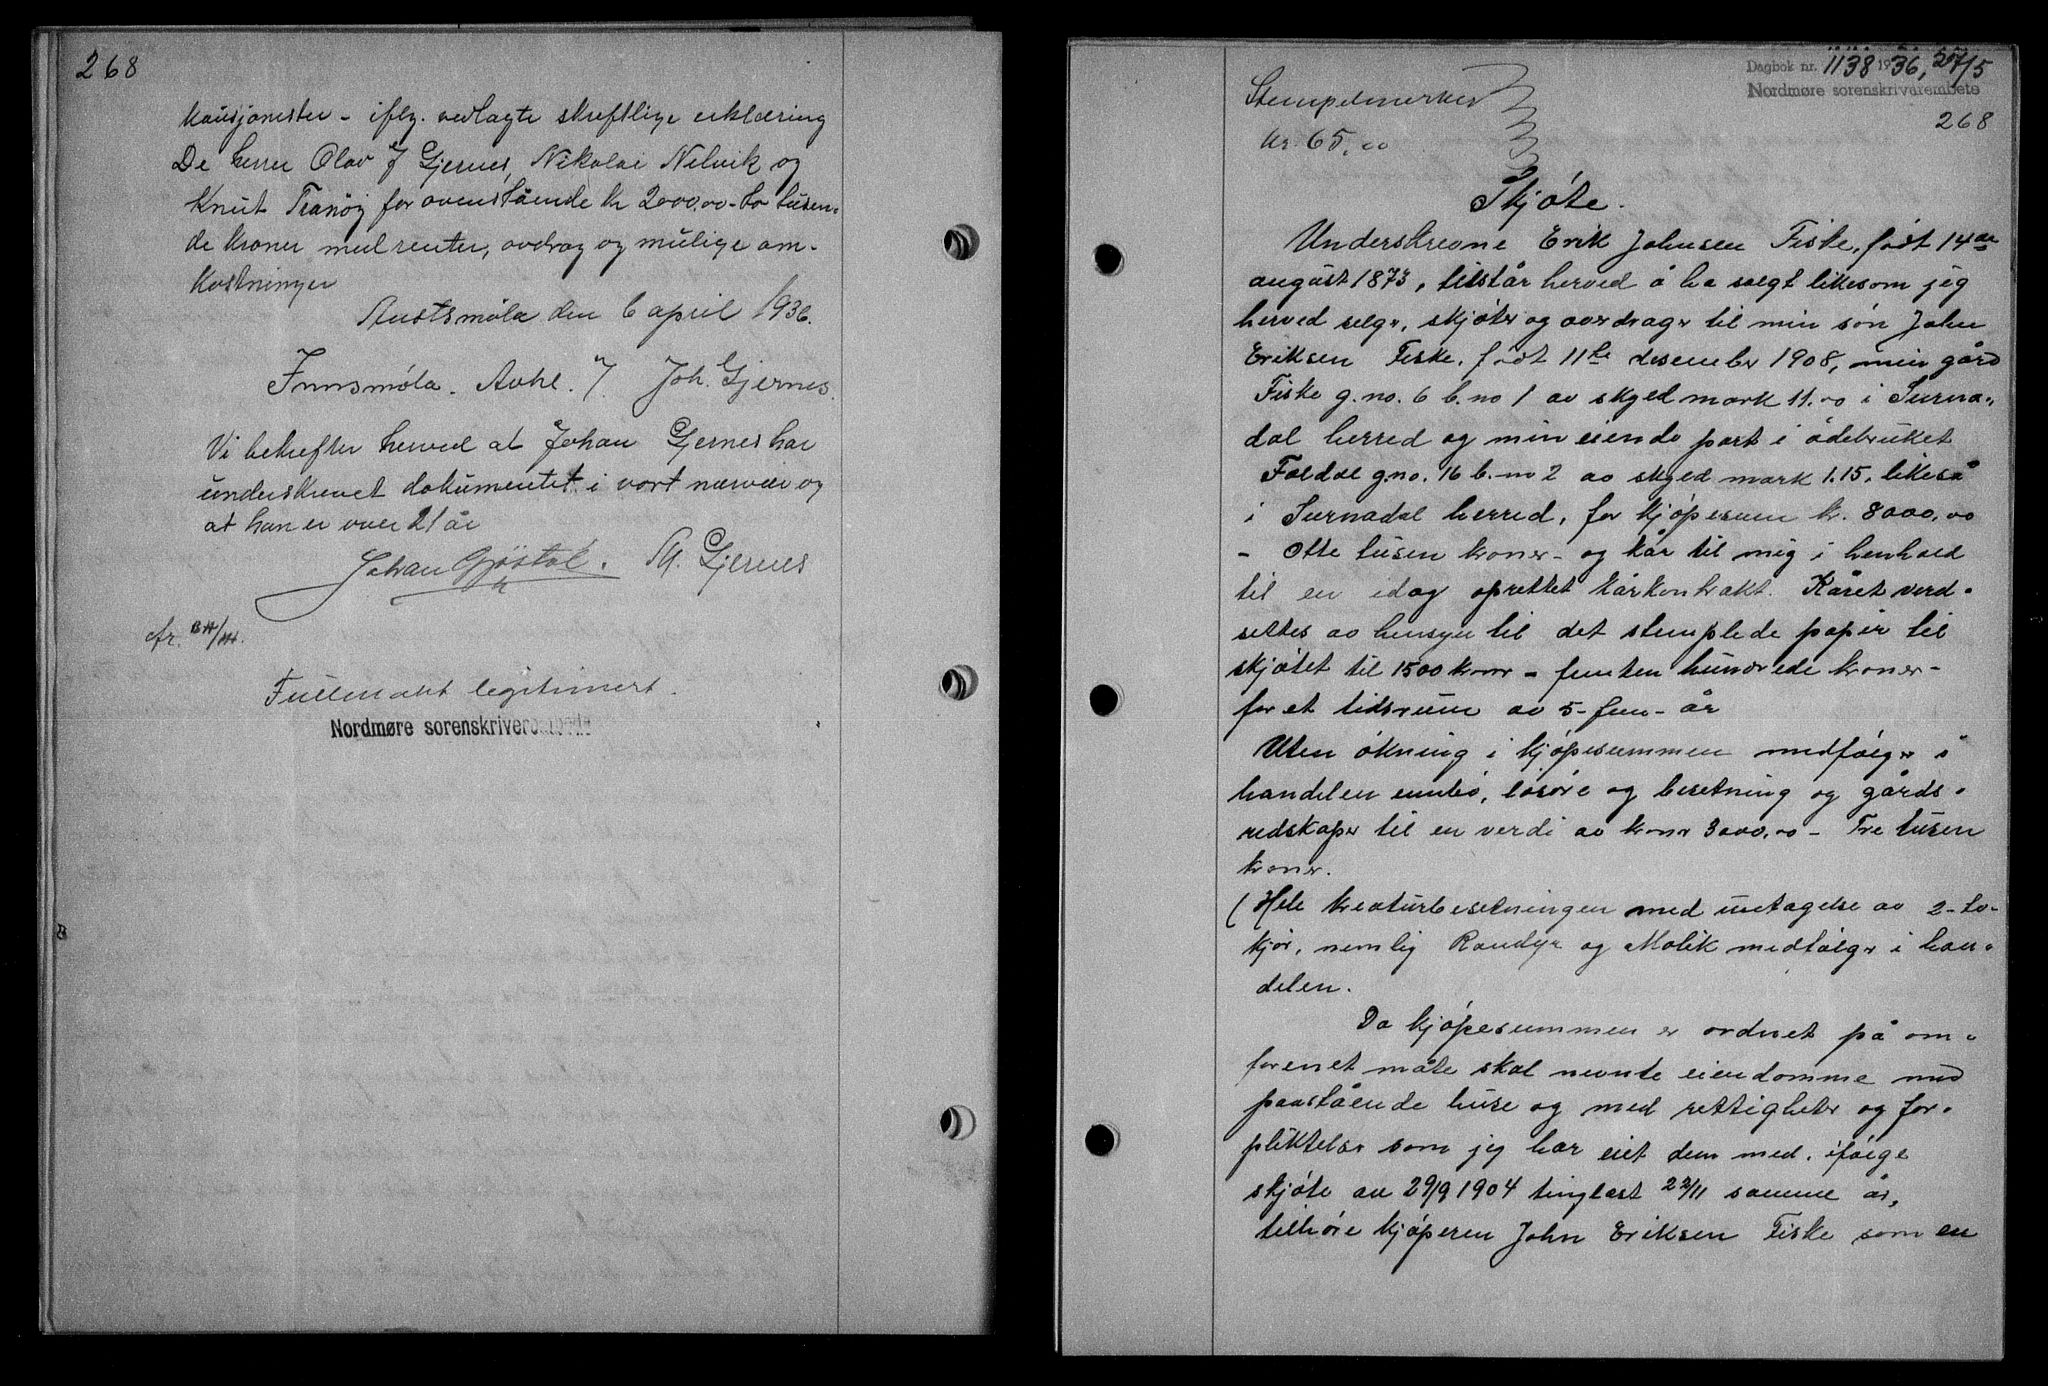 268
kausjonister - iflg. vedlagte skriftlige erklæring
De herrer Olav J Gjernes, Nikolai Nelvik og
Knut Tranöy for ovenstående kr 2000,00 - to tusen-
de kroner med renter, avdrag og mulige om-
kostninger
Austsmøla den 6 april 1936.
Innsmøla. Avhl. 7. Joh. Gjernes.
Vi bekrefter herved at Johan Gjernes har
underskrevet dokumentet i vort nærvær og
at han er over 21 år
Johan Gjöstøl. M. Gjernes
Fullmakt legitimert.
Nordmøre sorenskriverembete
Dagbok nr. 1138 1936, 27/5
Nordmøre sorenskrivarembete
268
Stempelmerker
kr. 65,00
Skjøte.
Underskrevne Erik Johnsen Fiske, født 14de
august 1873, tilstår herved å ha solgt likesom jeg
herved selger, skjøter og overdrager til min søn John
Eriksen Fiske, født 11te desember 1908, min gård
Fiske g.no. 6 b.no 1 av skyld mark 11.00 i Surna-
dal herred og min eiende part i ødebruket
Foldal g.no. 16 b.no 2 av skyld mark 1.15, likeså
i Surnadal herred, for kjøpesum kr. 8000,00
- Otte tusen kroner - og kår til mig i henhold
til en idag oprettet kårkontrakt. Kåret verd-
settes av hensyn til det stemplede papir til
skjøtet til 1500 kroner - femten hundrede kroner -
for et tidsrum av 5 - fem - år
Uten økning i kjøpesummen medfølger i
handelen innbo, løsøre og besetning og gårds-
redskaper til en verdi av kroner 3000,00 - Tre tusen
kroner.
( Hele kreaturbesetningen med untagelse av 2 - to -
kjør, nemlig Raudyr og Molik medfølger i han-
delen.
Da kjøpesummen er ordnet på om-
forenet måte skal nevnte eiendomme med
paastående huse og med rettigheter og for-
pliktelser som jeg har eiet dem med, ifølge
skjøte av 29/9 1904 tinglæst 22/11 samme år,
tilhøre kjøperen John Eriksen Fiske som en